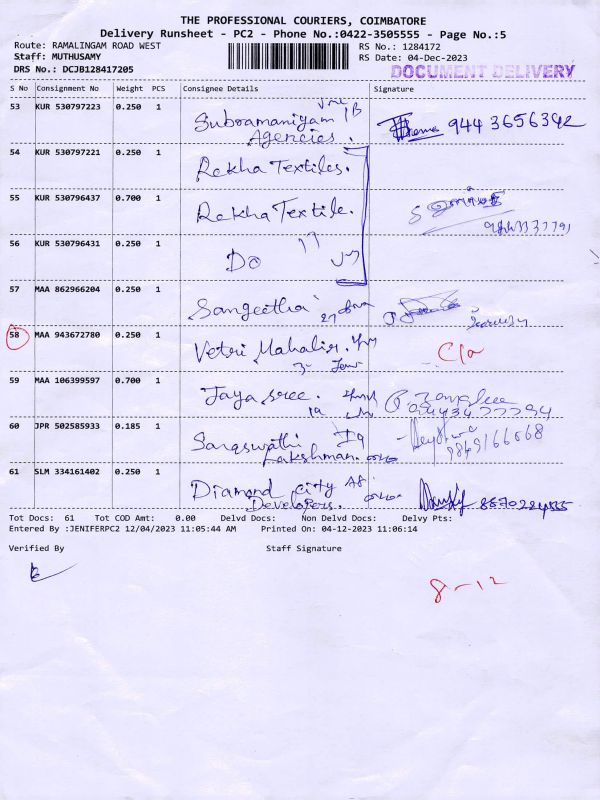 THE PROFESSIONAL COURIERS, COIMBATORE
Delivery Runsheet - PC2 - Phone No.:0422-3505555 - Page No.:5
Route: RAMALINGAM ROAD WEST
RS No.: 1284172
Staff: MUTHUSAMY
RS Date: 04-Dec-2023
DRS No.: DCJB128417205
DOCUMENT DELIVERY
S No Consignment No Weight PCS Consignee Details Signature
53 KUR 530797223 0.250 1 Subramaniyam
Agencies. 944 3656342
54 KUR 530797221 0.250 1 Rekha Textiles.
55 KUR 530796437 0.700 1 Rekha Textile.
56 KUR 530796431 0.250 1 Do
57 MAA 862966204 0.250 1 Sangeetha
58 MAA 943672780 0.250 1 Vetri Mahalir.
59 MAA 106399597 0.700 1 Jaya sree.
60 JPR 502585933 0.185 1 Saraswathi
Lakshman.
61 SLM 334161402 0.250 1 Diamond city
Developers.
Tot Docs: 61 Tot COD Amt: 0.00 Delvd Docs: Non Delvd Docs: Delvy Pts:
Entered By :JENIFERPC2 12/04/2023 11:05:44 AM Printed On: 04-12-2023 11:06:14
Verified By Staff Signature
8-12